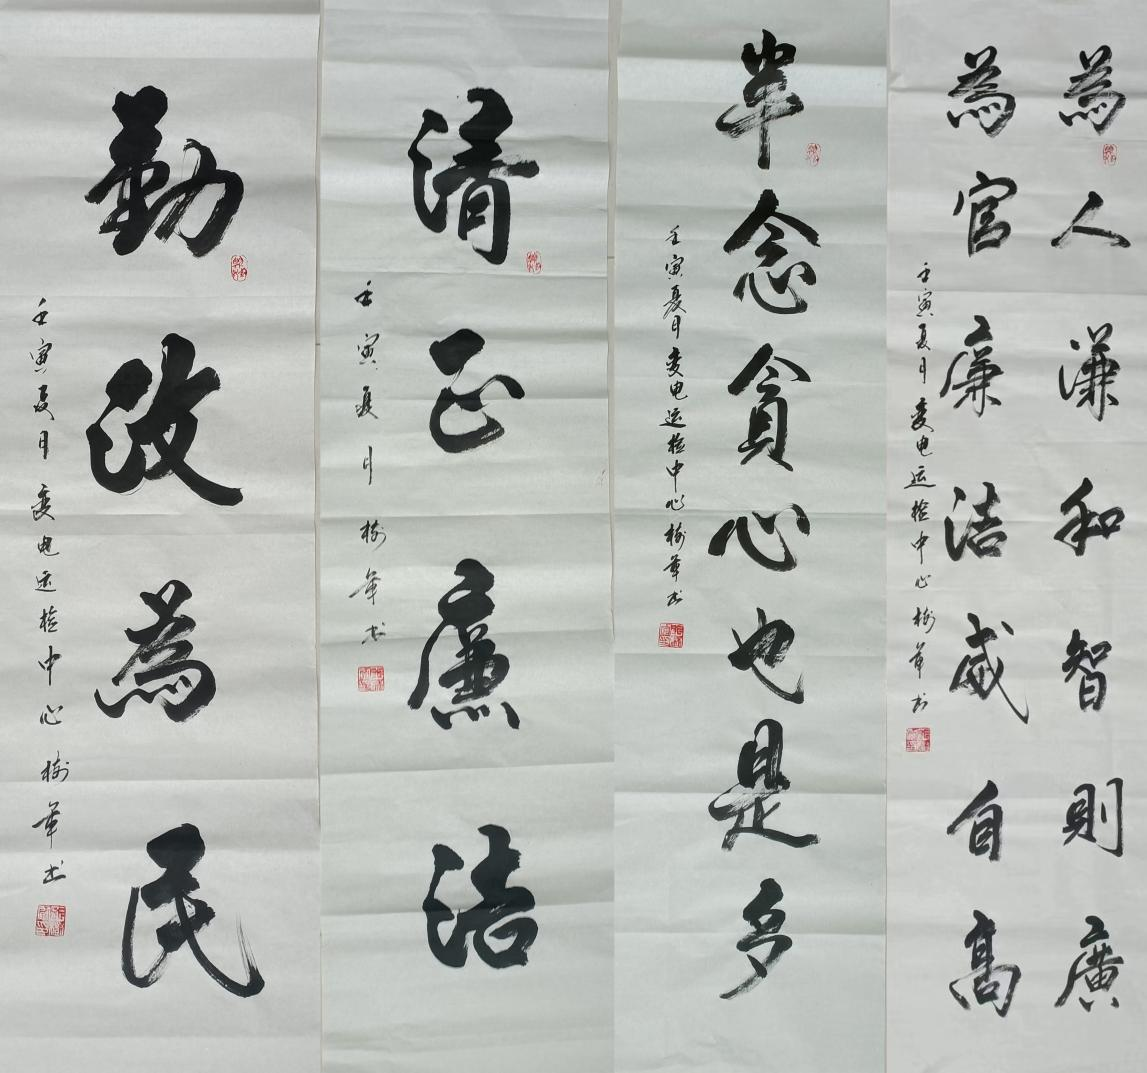 為人謙和智則廣
為官廉洁威自高
壬寅夏月变电运检中心树華书
半念貪心也是多
壬寅夏月变电运检中心树華书
清正廉洁
壬寅夏月树華书
勤政為民
壬寅夏月变电运检中心树華书